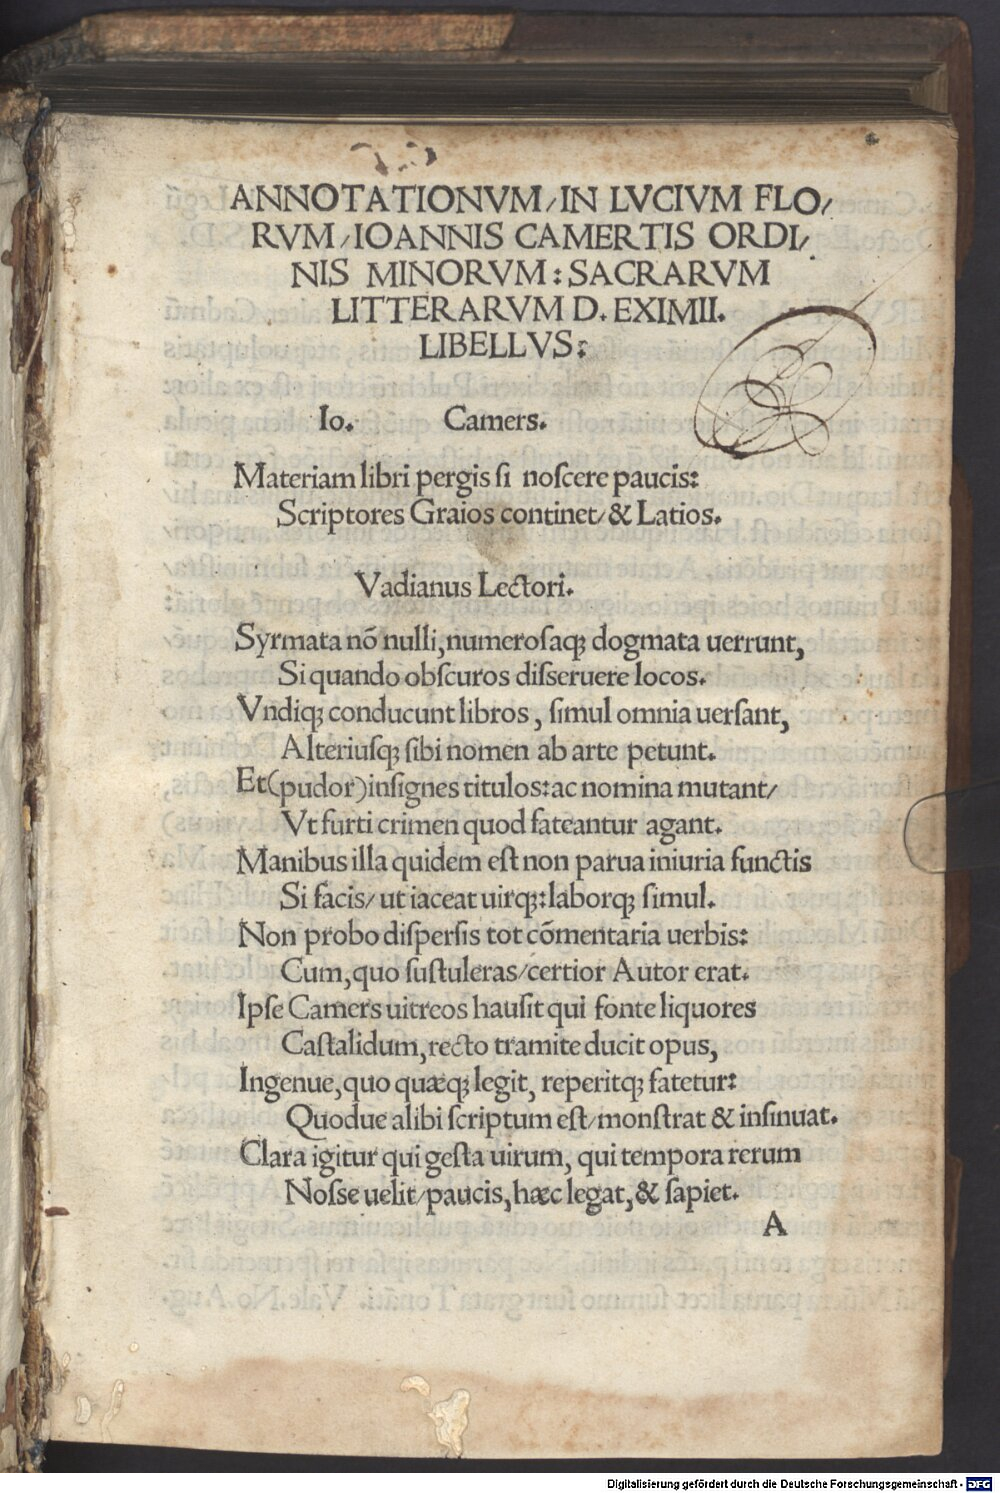 ANNOTATIONVM/IN LVCIVM FLO/
RVM/IOANNIS CAMERTIS ORDI/
NIS MINORVM: SACRARVM
LITTERARVM D. EXIMII.
LIBELLVS:
Io. Camers.
Materiam libri pergis si noscere paucis:
Scriptores Graios continet/ & Latios.
Vadianus Lectori.
Syrmata nõ nulli, numerosaqꝫ dogmata uerrunt,
Si quando obscuros disseruere locos.
Vndiqꝫ conducunt libros, simul omnia uersant,
Alteriusqꝫ sibi nomen ab arte petunt.
Et (pudor) insignes titulos: ac nomina mutant/
Vt furti crimen quod fateantur agant.
Manibus illa quidem est non parua iniuria functis
Si facis/ ut iaceat uirqꝫ: laborqꝫ simul.
Non probo dispersis tot cõmentaria uerbis:
Cum, quo sustuleras/ certior Autor erat.
Ipse Camers uitreos hausit qui fonte liquores
Castalidum, recto tramite ducit opus,
Ingenue, quo quæqꝫ legit, reperitqꝫ fatetur:
Quodue alibi scriptum est/ monstrat & insinuat.
Clara igitur qui gesta uirum, qui tempora rerum
Nosse uelit/ paucis, hæc legat, & sapiet.
A
Digitalisierung gefördert durch die Deutsche Forschungsgemeinschaft - DFG